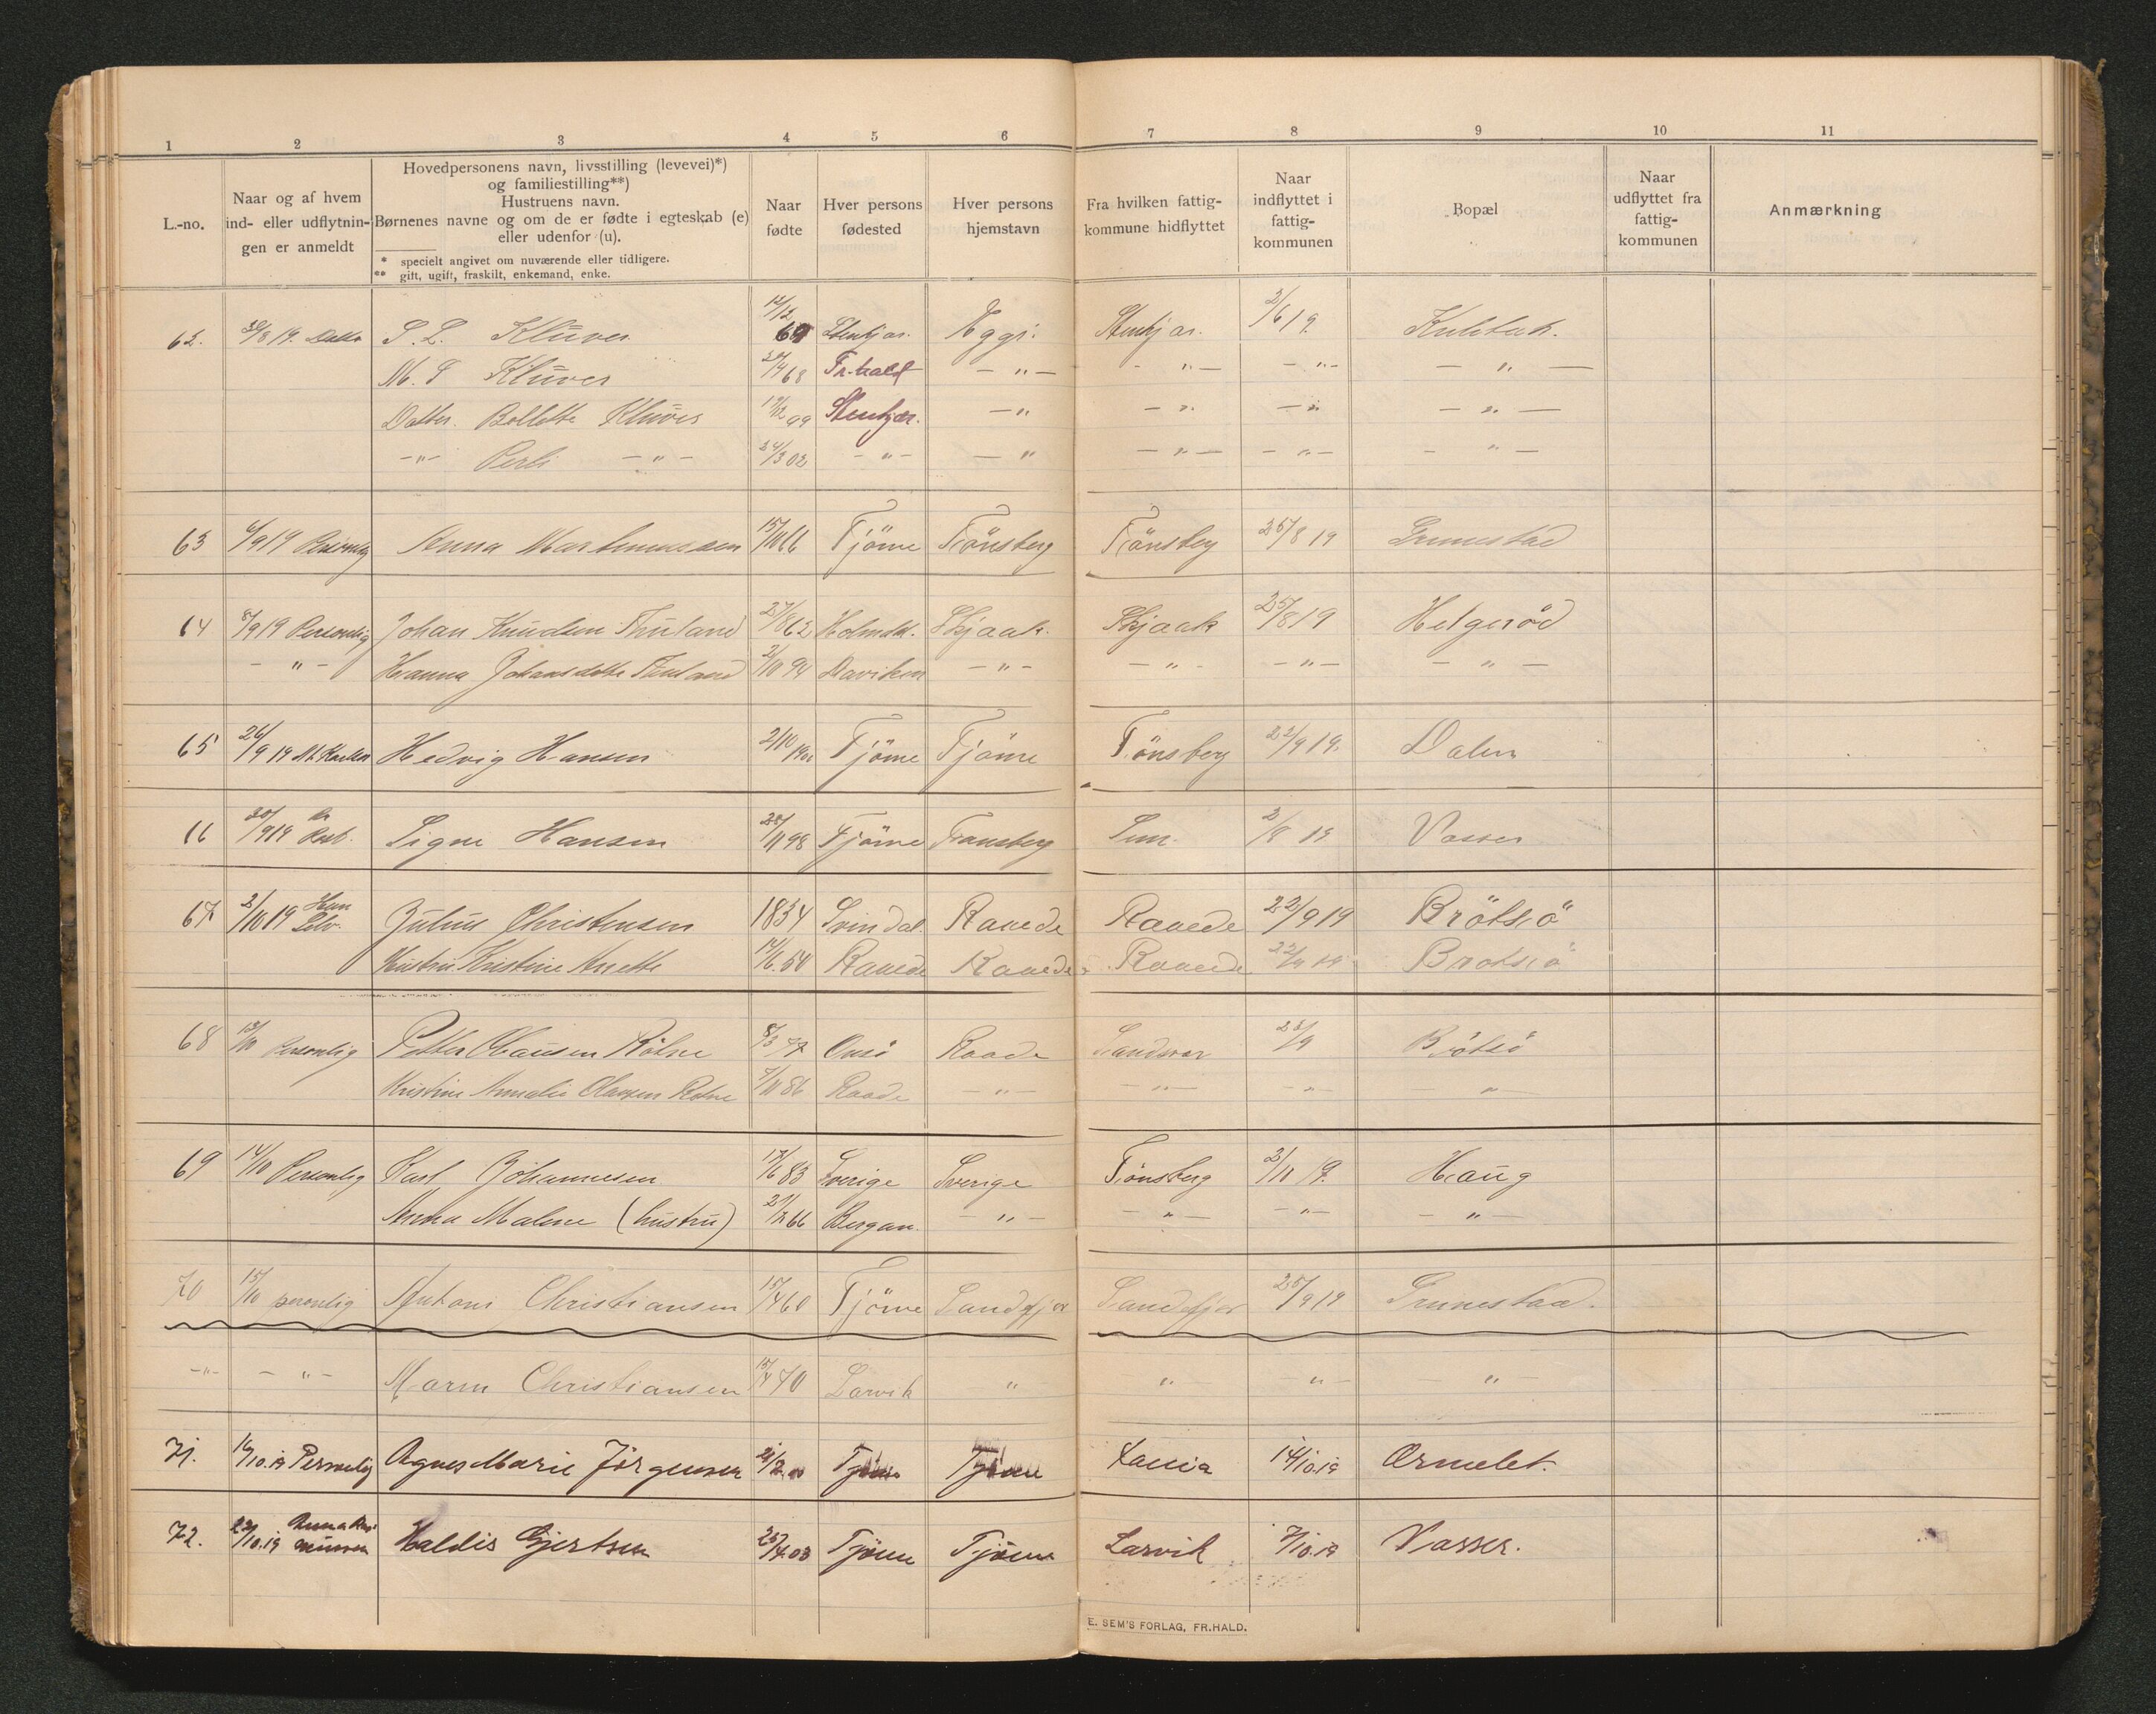 1 2 3 4 5 6 7 8 9 10 11
L.-no.
Naar og af hvem
ind- eller udflytnin-
gen er anmeldt
Hovedpersonens navn, livsstilling (levevei)*)
og familiestilling**)
Hustruens navn.
Børnenes navne og om de er fødte i egteskab (e)
eller udenfor (u).
* specielt angivet om nuværende eller tidligere.
** gift, ugift, fraskilt, enkemand, enke.
Naar
fødte
Hver persons
fødested
Hver persons
hjemstavn
Fra hvilken fattig-
kommune hidflyttet
Naar
indflyttet i
fattig-
kommunen
Bopæl
Naar
udflyttet fra
fattig-
kommunen
Anmærkning
62. S. L. Klüver Stenkjær. Eggi. Stenkjær. 2/6 19.
M. S Klüver 68 Fr.hald — " — - " — - " - — " —
Datter. Bollette Klüver 99 Stenkjær. — " — " — " — " —
—"— Perli — " — 24/3 02 — " — — " — " — — " — — " —
63 6/9 19 Personlig Anna Martinussen 15/10 66 Tjöme Tönsberg Tönsberg 25/8 19 Grimestad
64 8/9 19 Personlig Johan Knudsen Thuland 27/8 62 Holmdal. Skjaak. Skjaak 25/8 19 Helgeröd
— " — Hanna Johansdatter Thuland 2/10 94 Daviken — " — — " — — " — — " —
65 26/9 19 Hedvig Hansen 2/10 Tjöme Tjöme Tönsberg 22/9 19. Dalen
66 30/9 19 Signe Hansen 28/11 98 Tjöme Tönsberg Sem. 19 Vasser
67 3/10 19 Han Selv. Julius Christensen 1834 Svindal. Raaede Raaede 22/9 19 Brötsö
Hustru Kristine Anette 54 Raaede Raaede Raaede 22/9 19 Brötsö
68 13/10 Personlig Petter Olausen Rötne 8/3 77 Onsö Raade Sandsvær 23/9 Brötsö
Kristine Amalie Olausen Rötne 7/11 86 Raade — " — " — — " — — " —
69 14/10 Personlig Karl Johannesen 17/6 83 Sverige Sverige Tönsberg 2/11 19. Haug
Anna Malene (hustru) 66 Bergan. — " — — " — — " — — " —
70 15/10 personlig Antoni Christiansen 15/4 60 Tjöme Sandefjor Sandefjor 25/9 19 Grimestad.
—"— — " — Maren Christiansen 15/4 70 Larvik " " — " — — " —
71. 14/10.19 Personlig Agnes Marie Jörgensen Tjöme Tjöme 14/10.19 Ormelet.
72. 22/10.19 Haldis Gjertsen 25/4.03 Tjöme Tjöme Larvik 7/10.19 Vasser.
E. SEM'S FORLAG, FR.HALD.